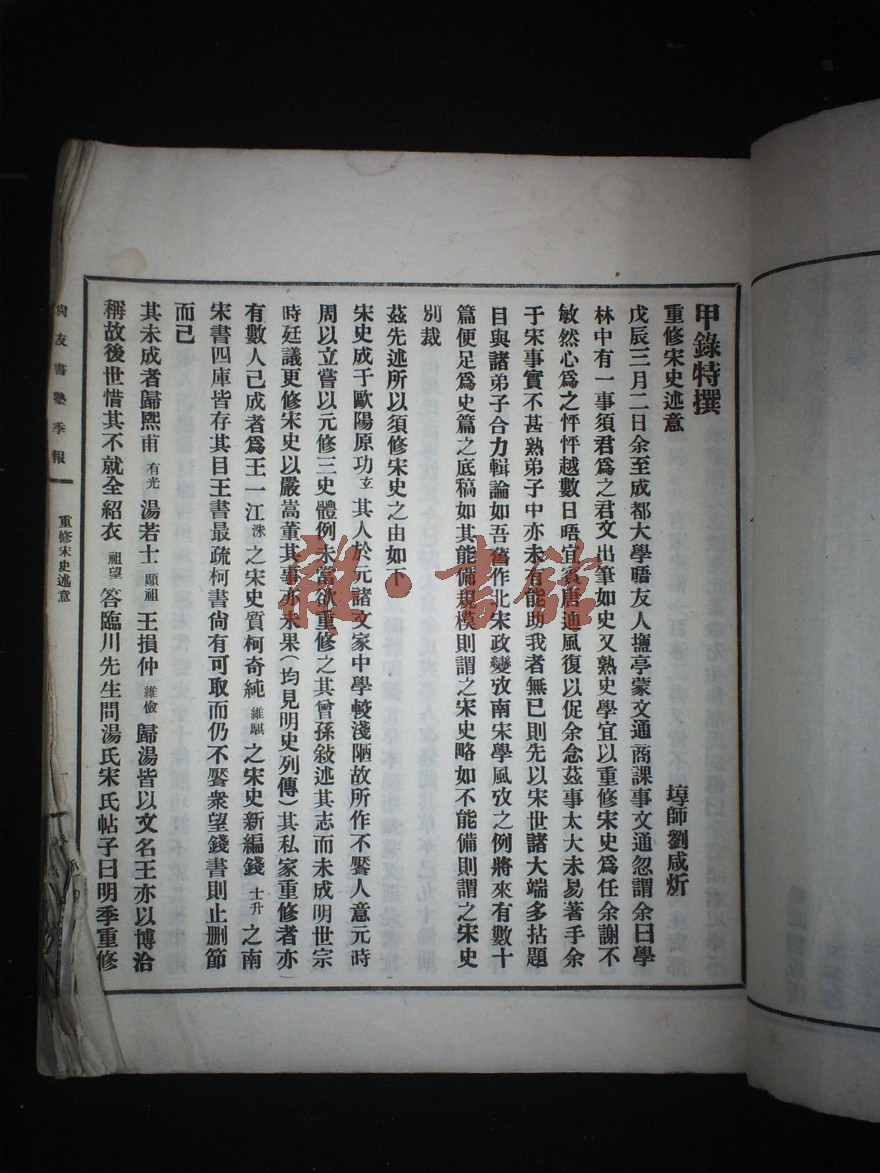 甲錄特撰
重修宋史述意
塾師劉咸炘
戊辰三月二日余至成都大學晤友人鹽亭蒙文通商課事文通忽謂余曰學
林中有一事須君爲之君文出筆如史又熟史學宜以重修宋史爲任余謝不
敏然心爲之怦怦越數日晤宜賓唐迪風復以促余念茲事太大未易著手余
于宋事實不甚熟弟子中亦未有能助我者無已則先以宋世諸大端多拈題
目與諸弟子合力輯論如吾舊作北宋政變攷南宋學風攷之例將來有數十
篇便足爲史篇之底稿如其能備規模則謂之宋史略如不能備則謂之宋史
別裁
茲先述所以須修宋史之由如下
宋史成于歐陽原功玄其人於元諸文家中學較淺陋故所作不饜人意元時
周以立嘗以元修三史體例未當欲重修之其曾孫敍述其志而未成明世宗
時廷議更修宋史以嚴嵩董其事亦未果(均見明史列傳)其私家重修者亦
有數人已成者爲王一江洙之宋史質柯奇純維騏之宋史新編錢士升之南
宋書四庫皆存其目王書最疏柯書尙有可取而仍不饜衆望錢書則止删節
而已
其未成者歸熙甫有光湯若士顯祖王損仲維儉歸湯皆以文名王亦以博洽
稱故後世惜其不就全紹衣祖望答臨川先生問湯氏宋氏帖子曰明季重修
尙友書塾季報
重修宋史述意
雜·書館